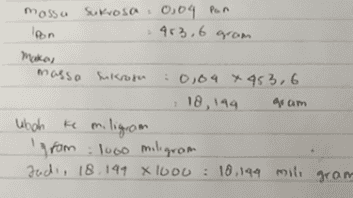 massa sukrosa : 0,04 Pon
1 Pon : 453,6 gram
Maka,
massa sukrosa : 0,04 × 453,6
: 18,144 gram
Ubah ke miligram
1 gram : 1000 miligram
Jadi, 18.144 × 1000 : 18,144 mili gram